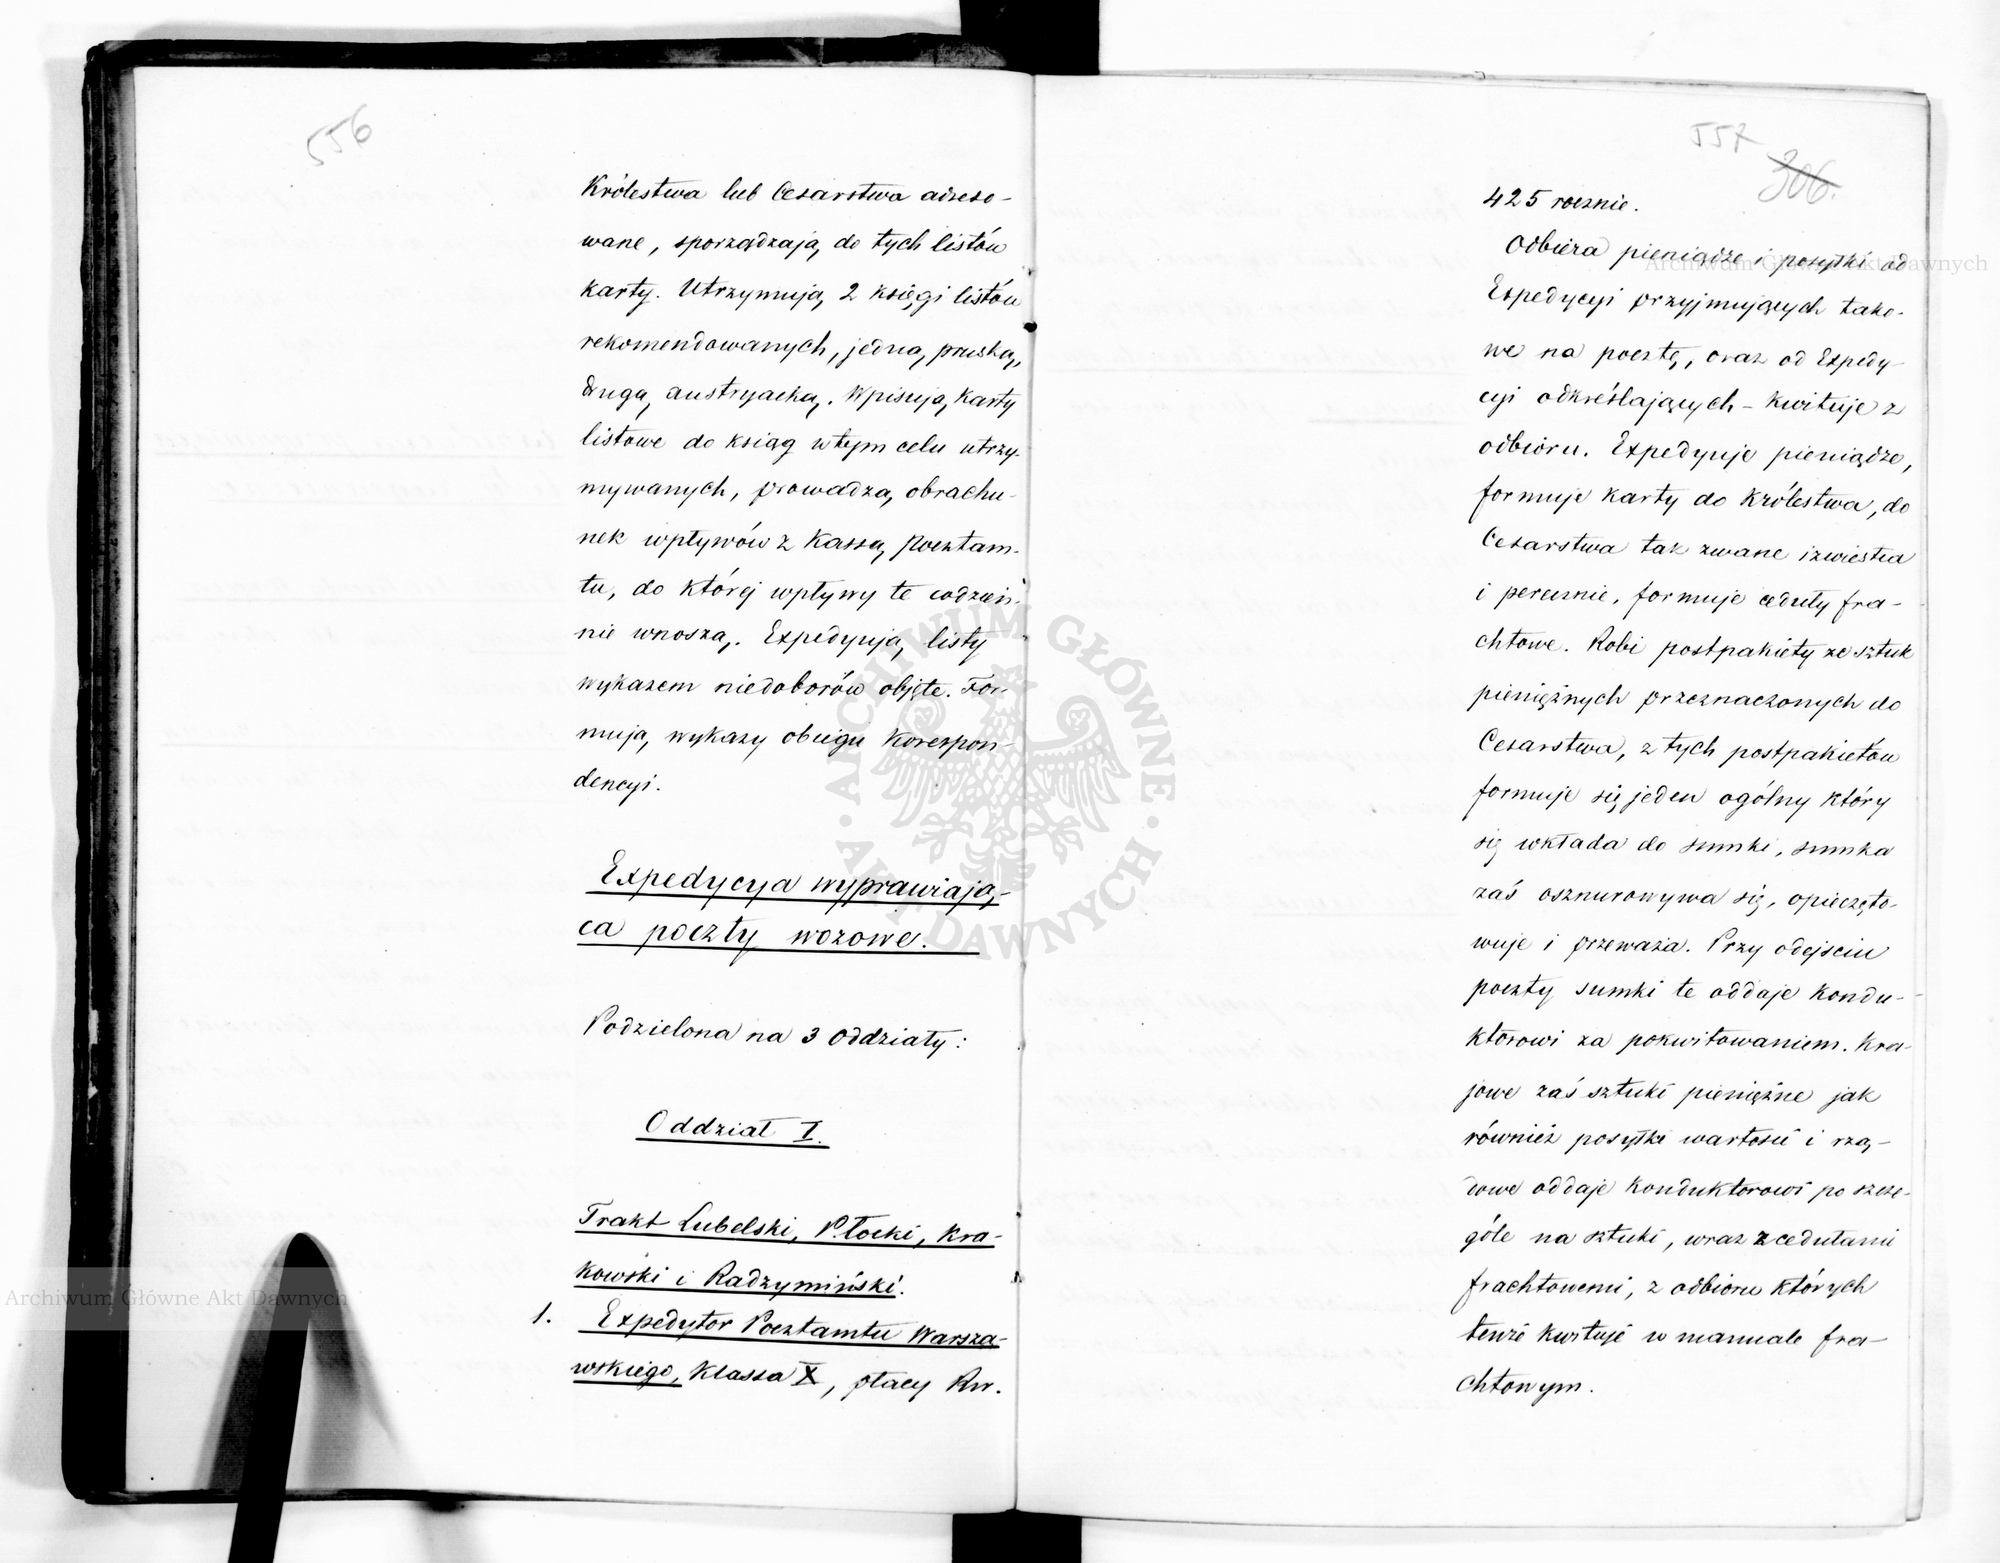 556
Królestwa lub Cesarstwa adreso-
wane, sporządzają do tych listów
karty. Utrzymują 2 księgi listów
rekomendowanych, jedną pruską,
drugą austryacką. Wpisują karty
listowe do ksiąg w tym celu utrzy-
mywanych, prowadzą obrachu-
nek wpływów z Kassą Pocztam-
tu, do której wpływy te codzień-
nie wnoszą. Expedyują listy
wykazem niedoborów objęte. For-
mują wykazy obiegu Korespon-
dencyi.
Expedycya wyprawiają-
ca poczty wozowe.
Podzielona na 3 Oddziały:
Oddział I.
Trakt Lubelski, Płocki, Kra-
kowski i Radzymiński.
1. Expedytor Pocztamtu Warsza-
wskiego, Klassa X, płacy Rw.
557
306.
425 rocznie.
Odbiera pieniądze i posyłki od
Expedycyi przyjmujących tako-
we na pocztę, oraz od Expedy-
cyi odkreślających - Kwituje z
odbioru. Expedyuje pieniądze,
formuje karty do Królestwa, do
Cesarstwa tak zwane izwiestia
i perecznie, formuje ceduły fra-
chtowe. Robi postpakiety ze sztuk
pieniężnych przeznaczonych do
Cesarstwa, z tych postpakietów
formuje się jeden ogólny który
się wkłada do sumki, sumka
zaś osznurowywa się, opieczęto-
wuje i przeważa. Przy odejściu
poczty sumki te oddaje Kondu-
ktorowi za pokwitowaniem. Kra-
jowe zaś sztuki pieniężne jak
również posyłki wartości i rzą-
dowe oddaje Konduktorowi po szcze-
góle na sztuki, wraz z cedułami
frachtowemi, z odbioru których
tenże kwituje w manuale fra-
chtowym.
Archiwum Główne Akt Dawnych
Archiwum Główne Akt Dawnych
ARCHIWUM GŁÓWNE · AKT DAWNYCH ·